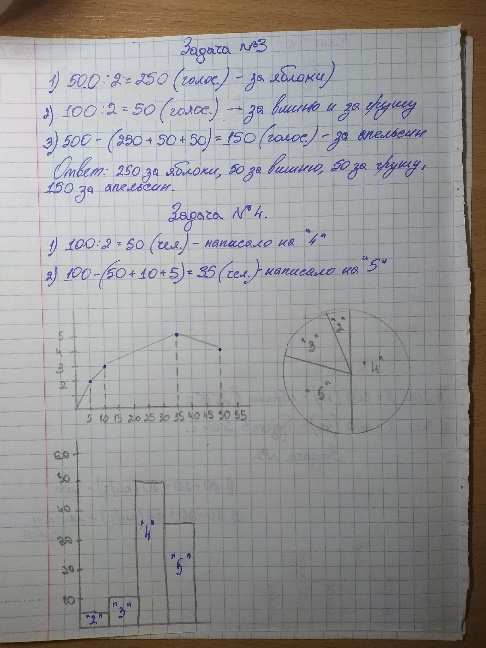 Задача №3
1) 500:2=250 (голос.) - за яблоки)
2) 100:2=50 (голос.) → за вишню и за грушу
3) 500-(250+50+50)=150 (голос.) - за апельсин
Ответ: 250 за яблоки, 50 за вишню, 50 за грушу,
150 за апельсин.
Задача №4.
1) 100:2=50 (чел.) - написало на "4"
2) 100-(50+10+5)=35 (чел.) - написало на "5"
5
4
3
2
5 10 15 20 25 30 35 40 45 50 55
"2"
"3"
"4"
"5"
60
50
40
30
20
10
"2" "3" "4" "5"